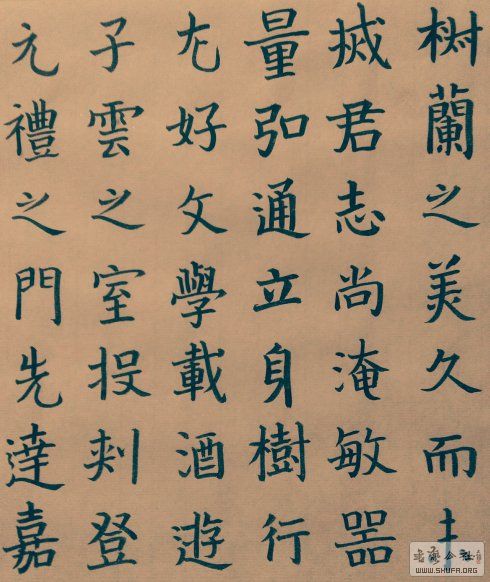 树蘭之美久而
君志尚淹敏器
量弘通立身樹行
尤好文學載酒遊
子雲之室投刺登
元禮之門先達嘉
WWW.SHUFA.ORG